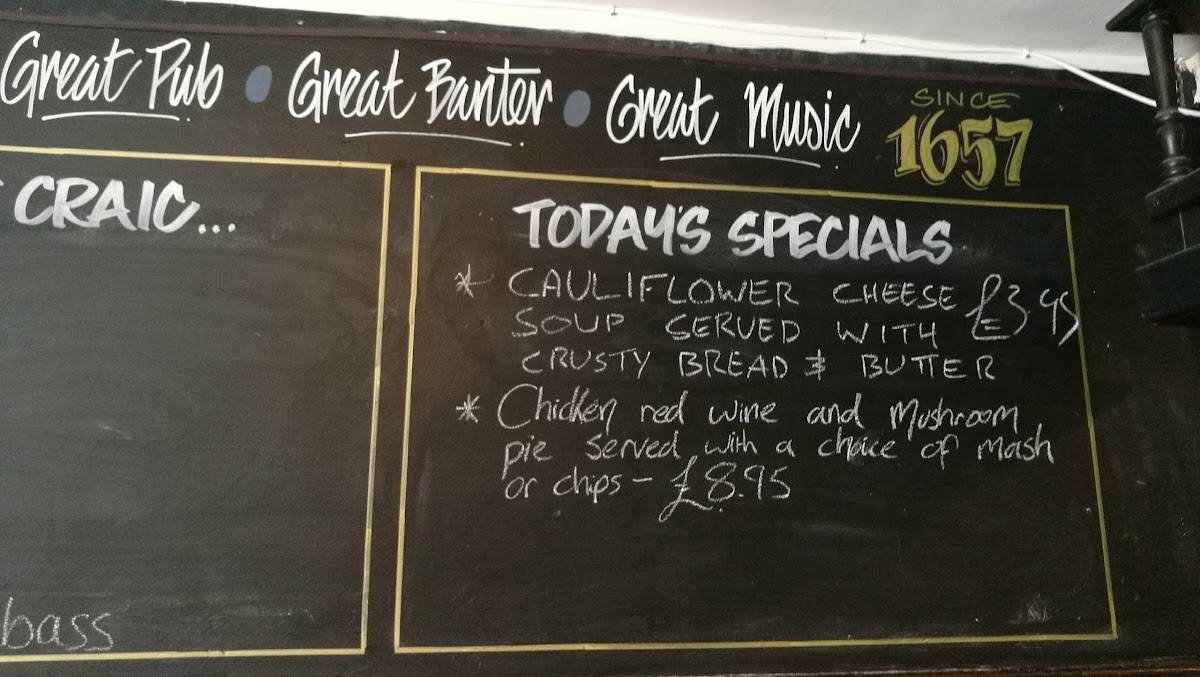 Great Pub • Great Banter • Great Music
SINCE
1657
CRAIC...
bass
TODAY'S SPECIALS
* CAULIFLOWER CHEESE £3.95
SOUP SERVED WITH
CRUSTY BREAD & BUTTER
* Chicken red wine and Mushroom
pie served with a choice of mash
or chips - £8.95